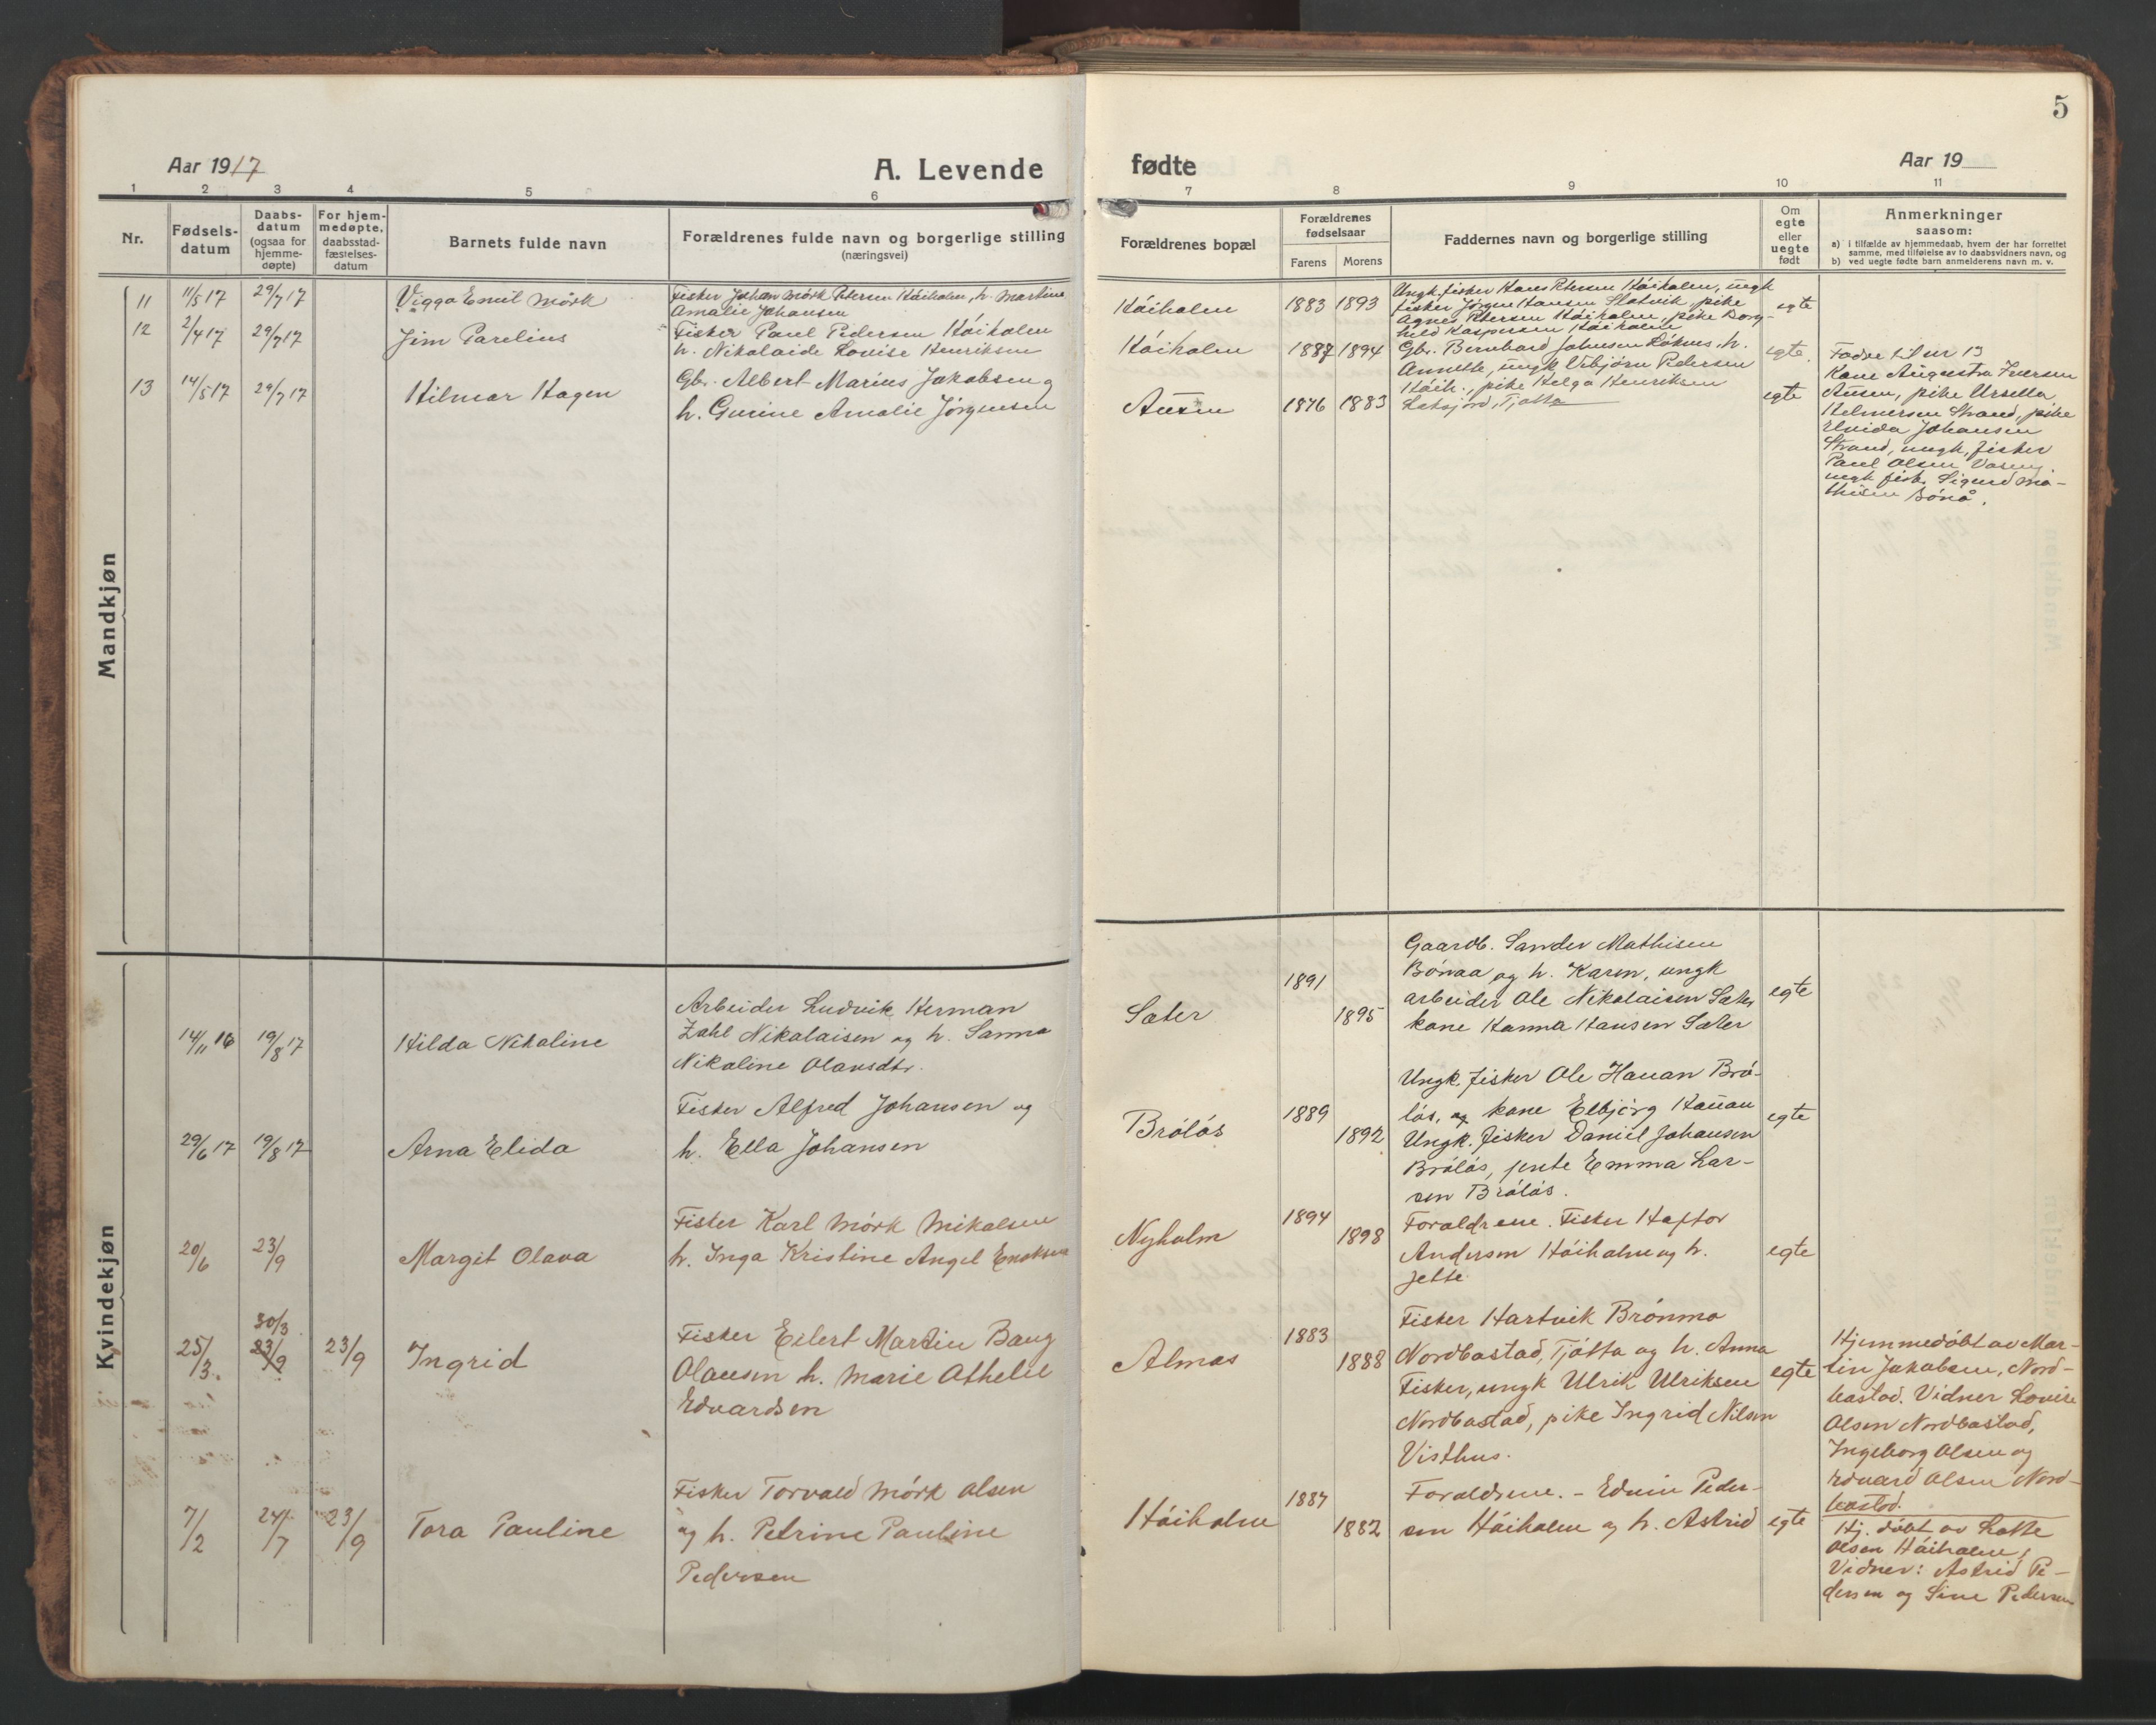 5
Aar 1917
A. Levende
fødte
Aar 19
1 2 3 4 5 6
7 8 9 10 11
Nr.
Fødsels-
datum
Daabs-
datum
(ogsaa for
hjemme-
døpte)
For hjem-
medøpte,
daabsstad-
fæstelses-
datum
Barnets fulde navn
Forældrenes fulde navn og borgerlige stilling
(næringsvei)
Forældrenes bopæl
Forældrenes
fødselsaar
Farens
Morens
Faddernes navn og borgerlige stilling
Om
egte
eller
uegte
født
Anmerkninger
saasom:
a) i tilfælde av hjemmedaab, hvem der har forrettet
samme, med tilføielse av to daabsvidners navn, og
b) ved uegte fødte barn anmelderens navn m. v.
Mandkjøn
11
11/5 17
29/7 17
Viggo Emil Mörk
Fisker Johan Mörk Petersen Höiholm, h. Martine
Amalie Johansen
Höiholm
1883
1893
Ungk fisker Hans Petersen Höiholm, ungk
fisker Jørgen Hansen Slotvik, pike
Agnes Petersen Höiholm, pike Borg-
hild Kaspersen Höiholm
egte
12
2/4 17
29/7 17
Jim Parelius
Fisker Paul Pedersen Höiholm
h. Nikolaide Lovise Henriksen
Höiholm
1887
1894
Gbr. Bernhard Johnsen Löknes, h.
Annette, ungk Urbjörn Pedersen
Höih., pike Helga Henriksen
Leksjord, Tjøtta
egte
13
14/5 17
29/7 17
Hilmar Hagen
Gbr. Albert Marius Jakobsen og
h. Gurine Amalie Jörgensen
Ausen
1876
1883
egte
Fadre til nr 13
Kone Augusta Iversen
Ausen, pike Ursella
Helmersen Strand, pike
Elvida Johansen
Strand, ungk, fisker
Paul Olsen Vaseng,
ungk fisk. Sigurd Ma-
thisen Bönå.
Kvindekjøn
14/11 16
19/8 17
Hilda Nikoline
Arbeider Ludvik Herman
Zahl Nikolaisen og h. Sanna
Nikoline Olausdtr.
Sæter
1891
1895
Gaardb. Sander Mathisen
Bönaa og h. Karen, ungk
arbeider Ole Nikolaisen Sæter
kone Hanna Hansen Sæter
egte
29/6 17
19/8 17
Arna Elida
Fisker Alfred Johansen og
h. Ella Johansen
Brölös
1889
1892
Ungk. fisker Ole Hauan Brö-
lös, og kone Elbjörg Hauan
Ungk. fisker Daniel Johansen
Brölös, jente Emma Lar-
sen Brölös.
egte
20/6
23/9
Margit Olava
Fisker Karl Mörk Mikalsen
h. Inga Kristine Angel Enoksen
Nyholm
1894
1898
Forældrene. Fisker Haftor
Andersen Höiholm og h.
Jette
egte
25/3.
30/3
23/9
23/9
Ingrid
Fisker Eilert Martin Bang
Olausen h. Marie Athelie
Edvardsen
Almås
1883
1888
Fisker Hartvik Brönmo
Nordbastad, Tjötta og h. Anna
Fisker, ungk Ulrik Ulriksen
Nordbastad, pike Ingrid Nilsen
Visthus.
egte
Hjemmedöbt av Mar-
tin Jakobsen, Nord-
bastad. Vidner Lovise
Olsen Nordbastad,
Ingeborg Olsen og
Edvard Olsen Nord-
bastad.
7/2
24/7
23/9
Tora Pauline
Fisker Torvald Mörk Olsen
og h. Petrine Pauline
Pedersen
Höiholm
1887
1882
Forældrene. - Edvin Peder-
sen Höiholm og h. Astrid
egte
Hj. döbt av Lotte
Olsen Höiholm,
Vidner: Astrid Pe-
dersen og Sine Pedersen